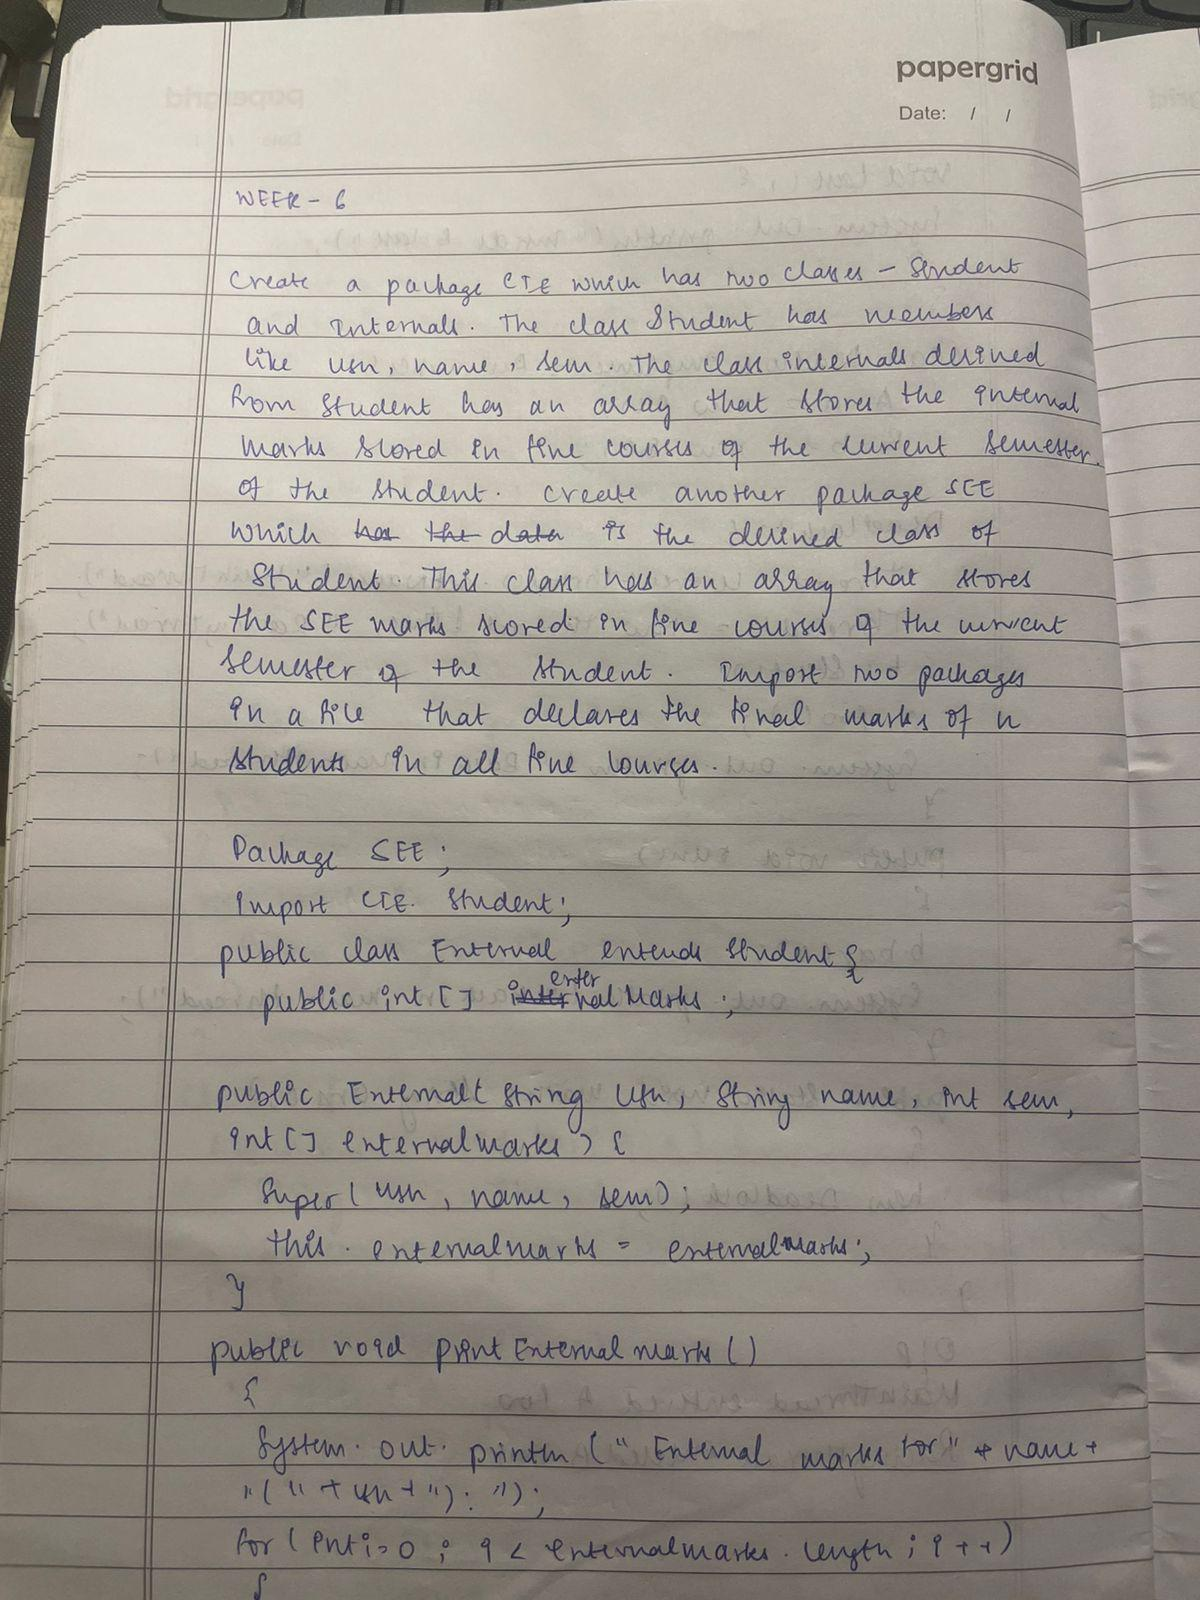 papergrid
Date: / /
WEEK - 6
Create a package CIE which has two classes - Student
and Internals. The class Student has members
like usn, name, sem. The class internals derived
from Student has an array that stores the internal
marks scored in five courses of the current semester
of the student. Create another package SEE
which has the data is the derived class of
Student. This class has an array that stores
the SEE marks scored in five courses of the current
semester of the student. Import two packages
in a file that declares the final marks of n
students in all five courses.
Package SEE;
import CIE. Student;
public class External extends Student {
enter
public int [] internalMarks ;
public External( String usn, String name, int sem,
int [] externalmarks ) {
Super ( usn, name, sem);
this. externalmarks = externalmarks;
}
public void printExternalmarks ()
{
System. out. println (" External marks for" + name +
"(" + usn + "): ");
for ( int i=0 ; i < externalmarks. length ; i ++)
{